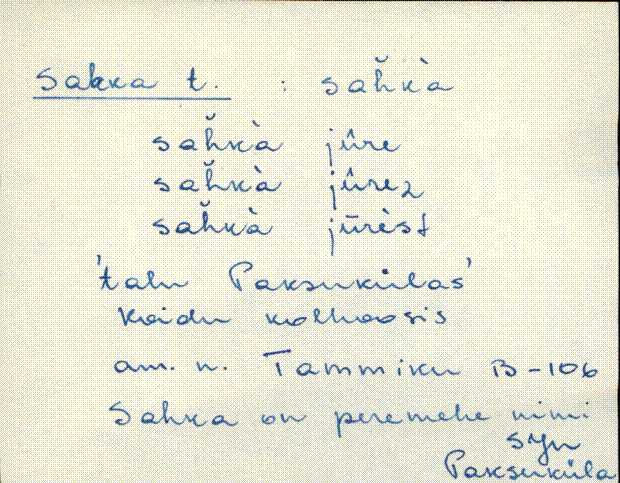 Sahka t. : saȟkà
saȟkà jûre
saȟkà jûrez
saȟkà jūrèst
'talu Paksukülas'
Koidu kolhoosis
am. n. Tammiku B-106
Sahka on peremehe nimi
Syn
Paksuküla